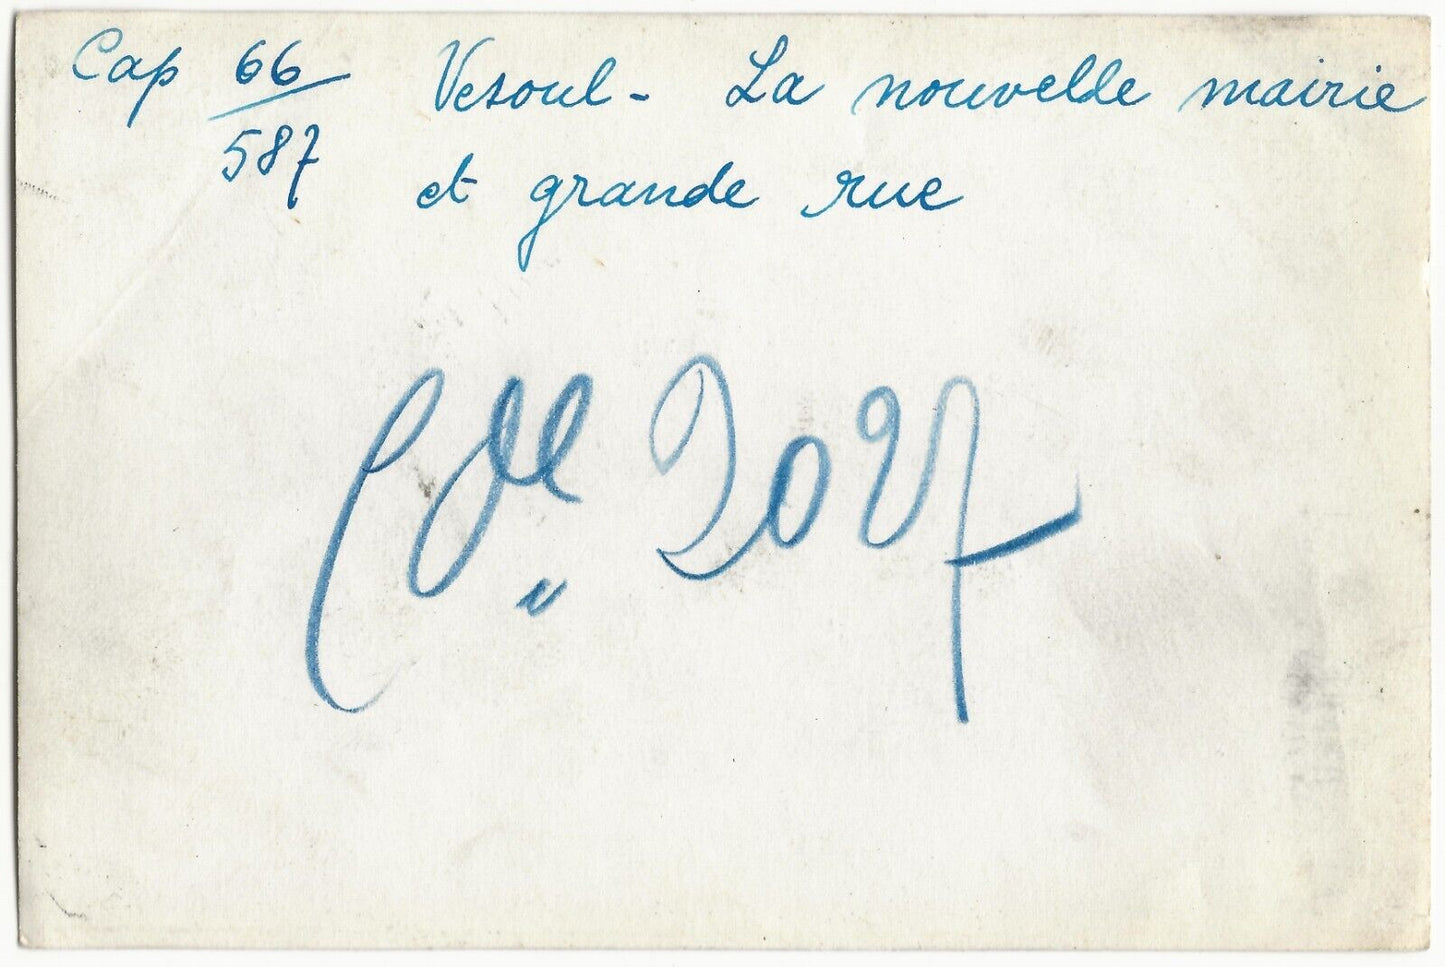 Cap 66/587 Vesoul - La nouvelle mairie
et grande rue